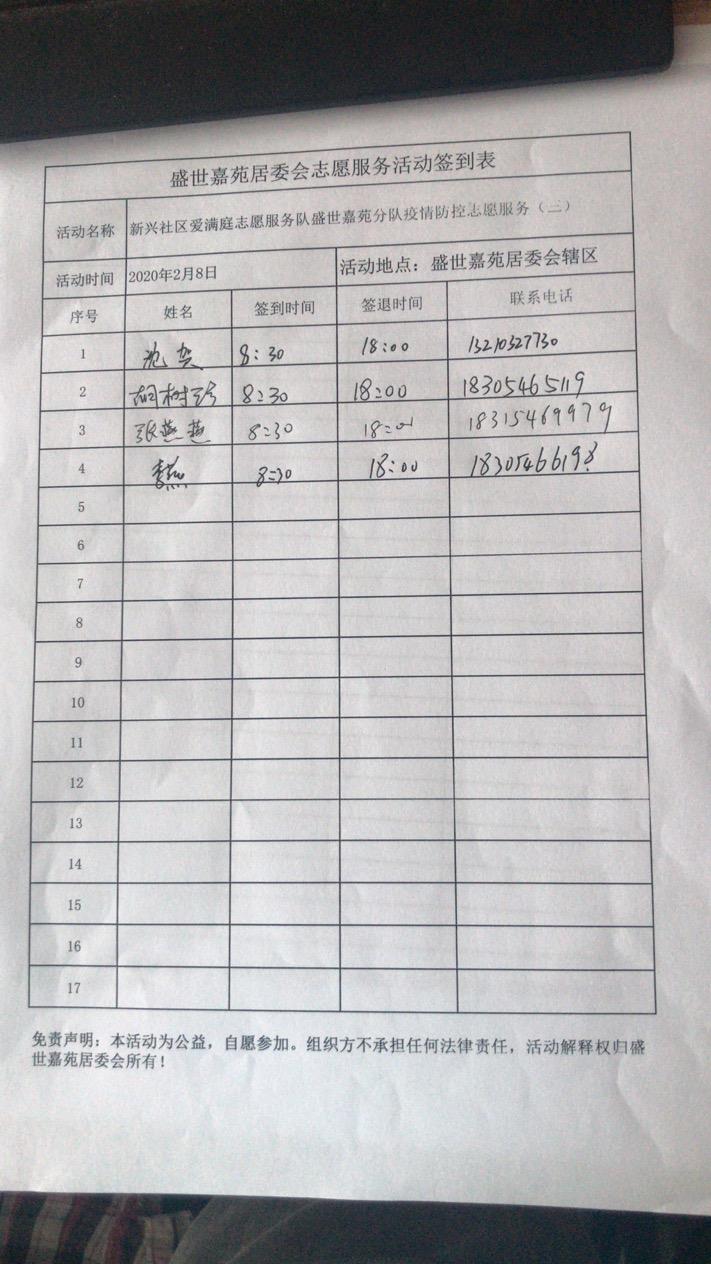 盛世嘉苑居委会志愿服务活动签到表
活动名称 新兴社区爱满庭志愿服务队盛世嘉苑分队疫情防控志愿服务（三）
活动时间 2020年2月8日 活动地点：盛世嘉苑居委会辖区
序号 姓名 签到时间 签退时间 联系电话
1 8:30 18:00 13210327730
2 胡树珍 8:30 18:00 18305465119
3 张燕燕 8:30 18:01 18315469979
4 李燕 8:30 18:00 18305466198
5
6
7
8
9
10
11
12
13
14
15
16
17
免责声明：本活动为公益，自愿参加。组织方不承担任何法律责任，活动解释权归盛
世嘉苑居委会所有！